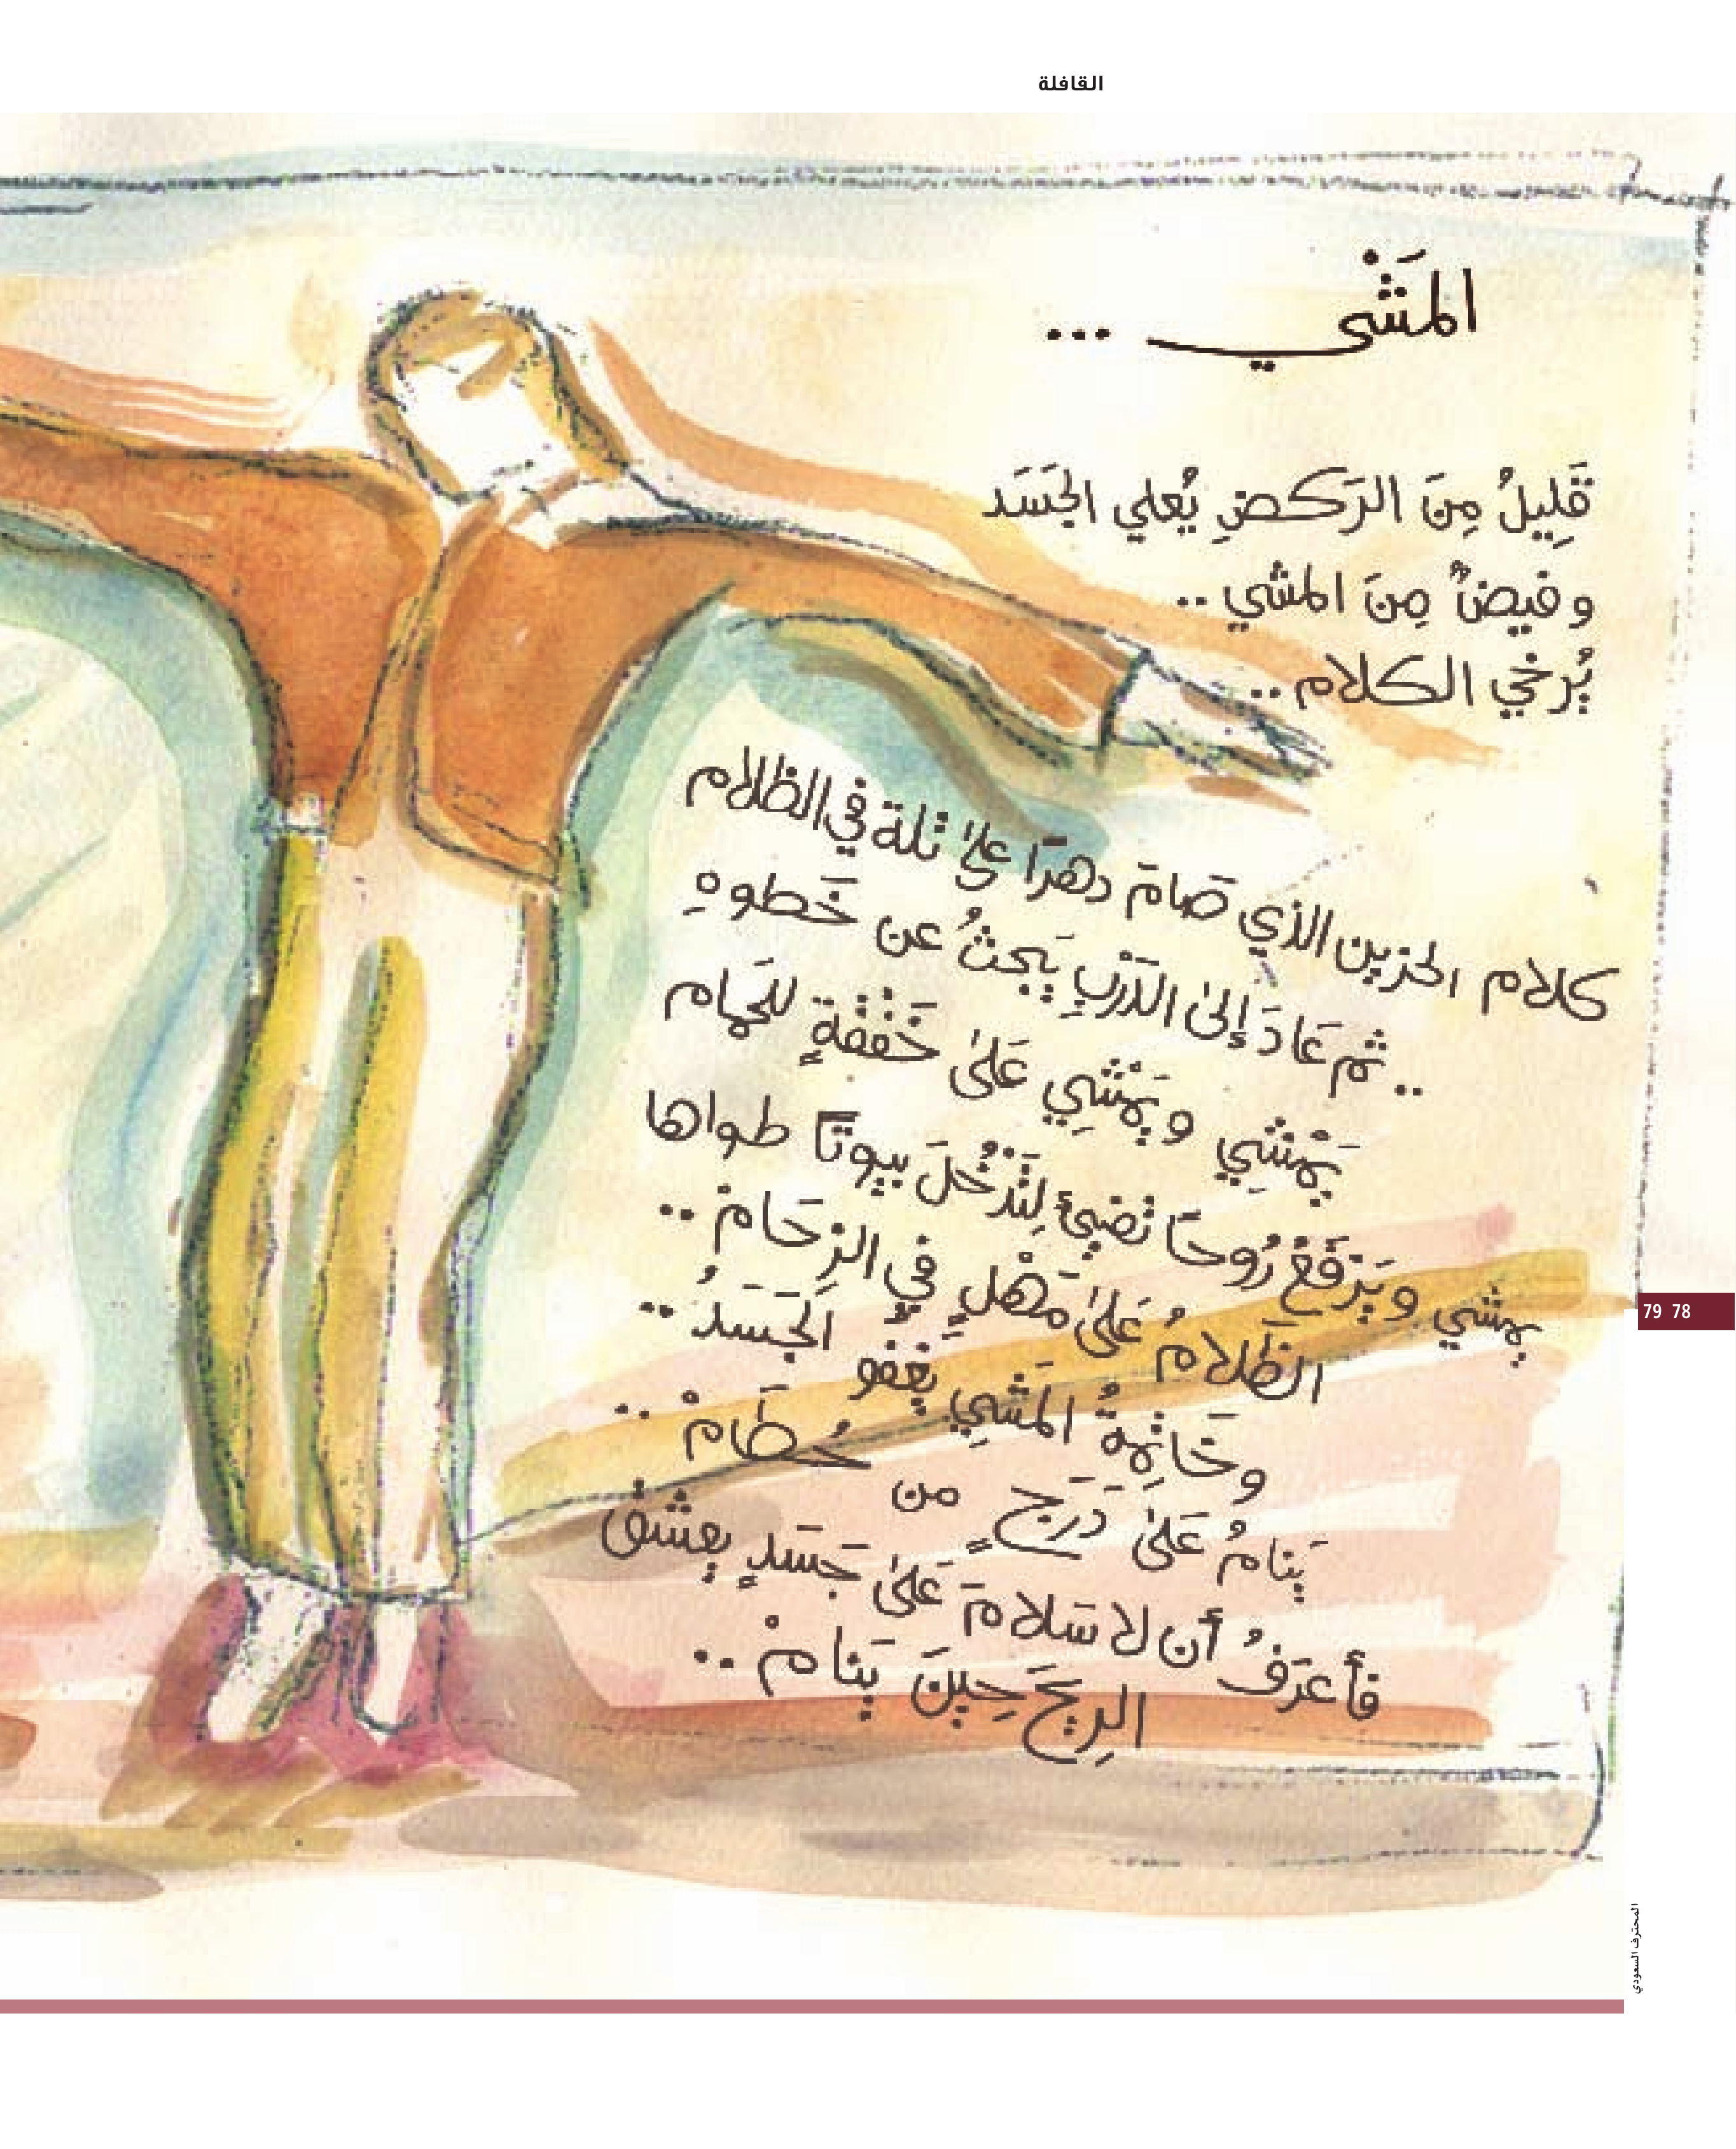 القافلة
المَشْي ...
قَلِيلُ مِنَ الرَكضِ يُعلي الجَسَد
وفيضٌ مِنَ المشي ..
يُرخي الكلام ..
كلام الحزين الذي صَامَ دهرًا على تلة في الظلام
.. ثم عَادَ إلى الدَرْبِ يَبحثُ عن خَطوهِ
يَمْشِي ويَمْشِي عَلى خَفْقَةٍ للحَمام
يمشي ويَرْفَعُ رُوحًا تضيئ لِتَدْخُلَ بيوتًا طواها
الظَلامُ عَلى مَهْلٍ في الزِحَامْ ..
وخَاتِمةُ المَشِي يَغفُو الجَسَدُ ..
يَنامُ عَلى دَرَجٍ من حُطَامْ ..
فأعرَفُ أن لا سَلامَ عَلى جَسَدٍ يعشقْ
الرِيحَ حِينَ يَنامْ ..
79 78
المحترف السعودي